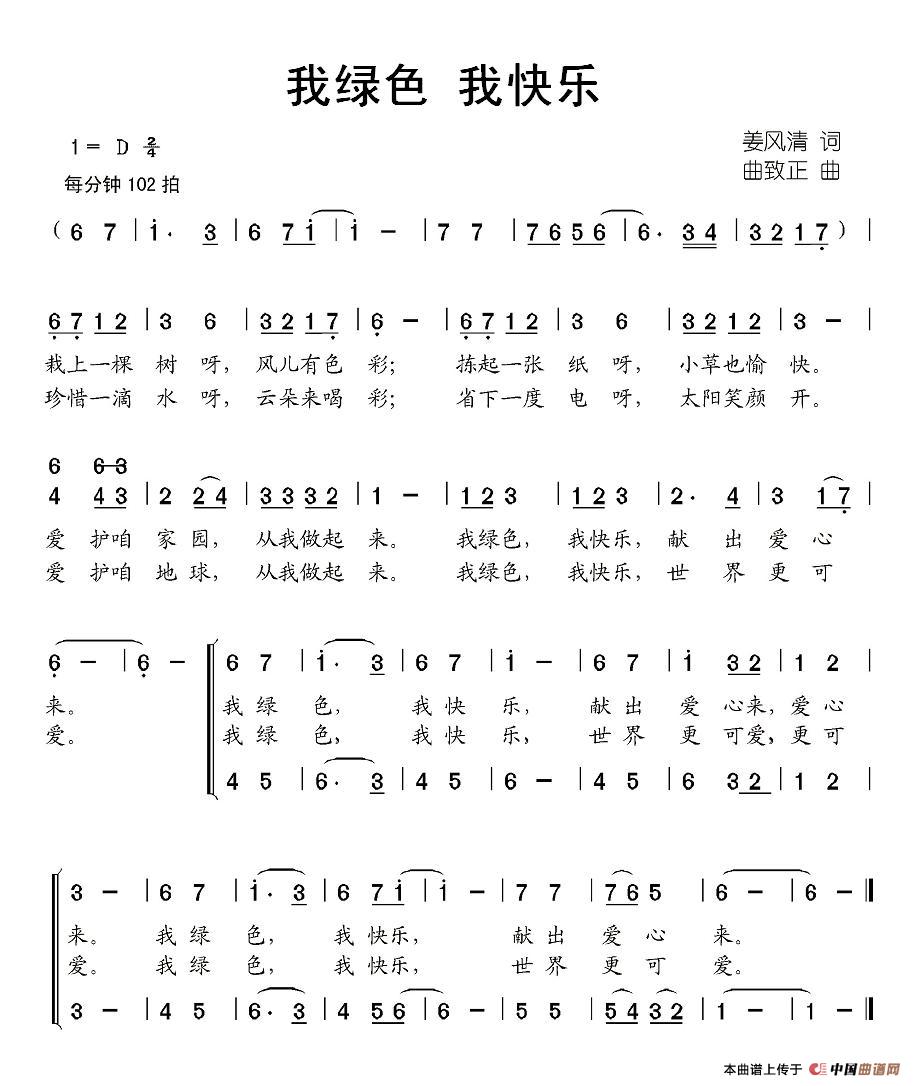 我绿色 我快乐
1= D 2/4
姜风清 词
每分钟 102 拍
曲致正 曲
( 6 7 | i· 3 | 6 7i | i - | 7 7 | 7656 | 6· 34 | 3217 ) |
6712 | 3 6 | 3217 | 6 - | 6712 | 3 6 | 3212 | 3 - |
栽上一棵 树 呀, 风儿有色 彩; 拣起一张 纸 呀, 小草也愉 快。
珍惜一滴 水 呀, 云朵来喝 彩; 省下一度 电 呀, 太阳笑颜 开。
6 6-3
4 43 | 2 24 | 3332 | 1 - | 123 | 123 | 2· 4 | 3 17 |
爱 护咱 家 园, 从我做起 来。 我绿色, 我快乐, 献 出 爱 心
爱 护咱 地 球, 从我做起 来。 我绿色, 我快乐, 世 界 更 可
6 - | 6 - 6 7 | i· 3 | 6 7 | i - | 6 7 | i 32 | 1 2 |
来。 我 绿 色, 我 快 乐, 献 出 爱 心来, 爱 心
爱。 我 绿 色, 我 快 乐, 世 界 更 可爱, 更 可
4 5 | 6· 3 | 4 5 | 6 - | 4 5 | 6 32 | 1 2 |
3 - | 6 7 | i· 3 | 6 7i | i - | 7 7 | 765 | 6 - | 6 - ‖
来。 我 绿 色, 我 快乐, 献 出 爱 心 来。
爱。 我 绿 色, 我 快乐, 世 界 更 可 爱。
3 - | 4 5 | 6· 3 | 4 56 | 6 - | 5 5 | 5432 | 1 - | 1 - ‖
本曲谱上传于 中国曲谱网